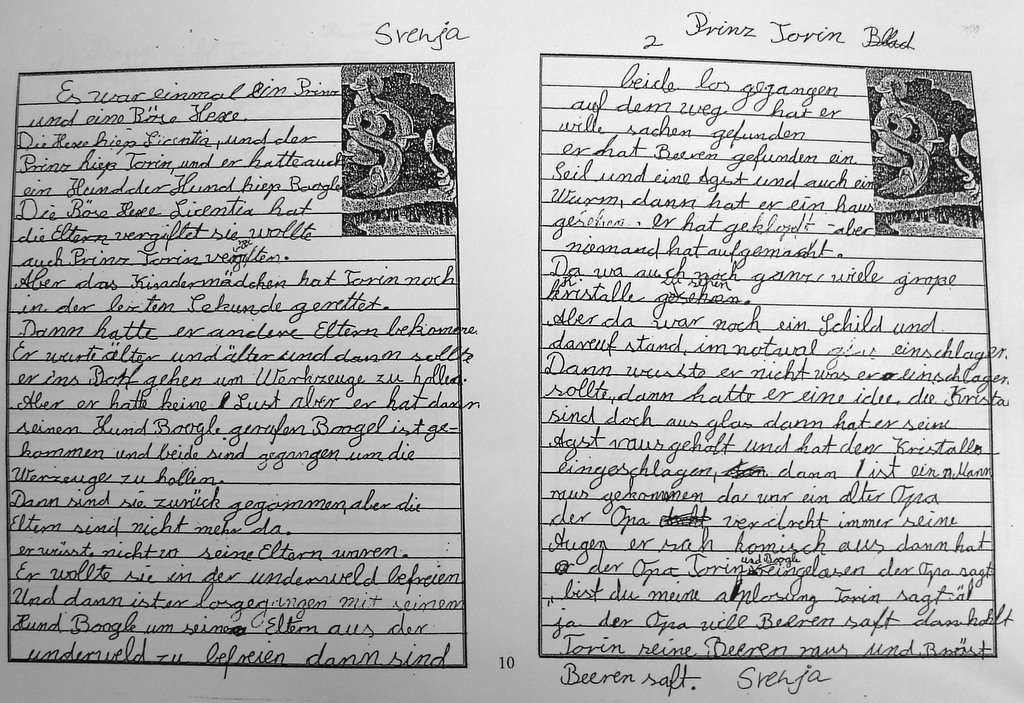 Svenja
Es war einmal ein Prinz
und eine Böse Hexe.
Die Hexe hieß Licentia, und der
Prinz hieß Torin, und er hatte auch
ein Hund der Hund hieß Boogle
Die Böse Hexe Licentia hat
die Eltern vergiftet sie wollte
auch Prinz Torin vergiften.
Aber das Kindermädchen hat Torin noch
in der lezten Sekunde gerettet.
Dann hatte er andere Eltern bekommene.
Er wurte älter und älter und dann sollte
er ins Dorf gehen um Werkzeuge zu hollen.
Aber er hatte keine Lust aber er hat dann
seinen Hund Boogle gerufen Boogel ist ge-
kommen und beide sind gegangen um die
Werzeuge zu hollen.
Dann sind sie zurück gegommen, aber die
Eltern sind nicht mehr da.
er wusste nicht wo seine Eltern waren.
Er wollte sie in der underweld befreien
Und dann ist er losgegangen mit seinem
Hund Boogle um seine Eltern aus der
underweld zu befreien dann sind
10
2 Prinz Torin
beide los gegangen
auf dem weg hat er
wille sachen gefunden
er hat Beeren gefunden ein
Seil und eine Agst und auch ein
Wurm, dann hat er ein haus
gesehen. er hat geklopft aber
niemand hat aufgemacht.
Da wa auch noch ganz viele große
kristalle zu sehen.
Aber da war noch ein Schild und
darauf stand, im notwal glas einschlagen.
Dann wusste er nicht was er einschlagen
sollte, dann hatte er eine idee, die Krista
sind doch aus glas dann hat er seine
Agst rausgeholt und hat den Kristall
eingeschlagen, dann ist ein Mann
raus gekommen da war ein alter Opa
der Opa verdreht immer seine
Augen er sah komisch aus dann hat
der Opa Torin und Boogle reingelasen der Opa sagt
„bist du meine aplosung Torin sagt äl
ja der Opa will Beeren saft dann hohlt
Torin seine Beeren raus und Bräst
Beeren saft. Svenja